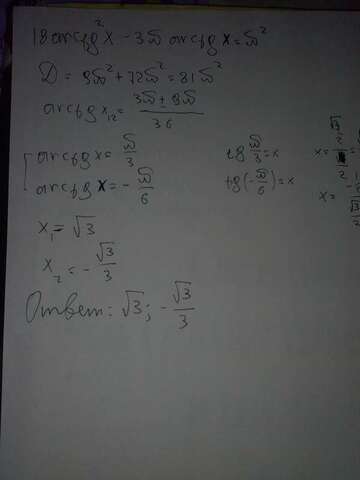 18 arctg² x - 3π arctg x = π²
D = 9π² + 72π² = 81π²
arctg x₁₂ = (3π ± 9π)/36
arctg x = π/3
arctg x = - π/6
tg π/3 = x
tg(-π/6) = x
x₁ = √3
x₂ = - √3/3
Ответ: √3; - √3/3